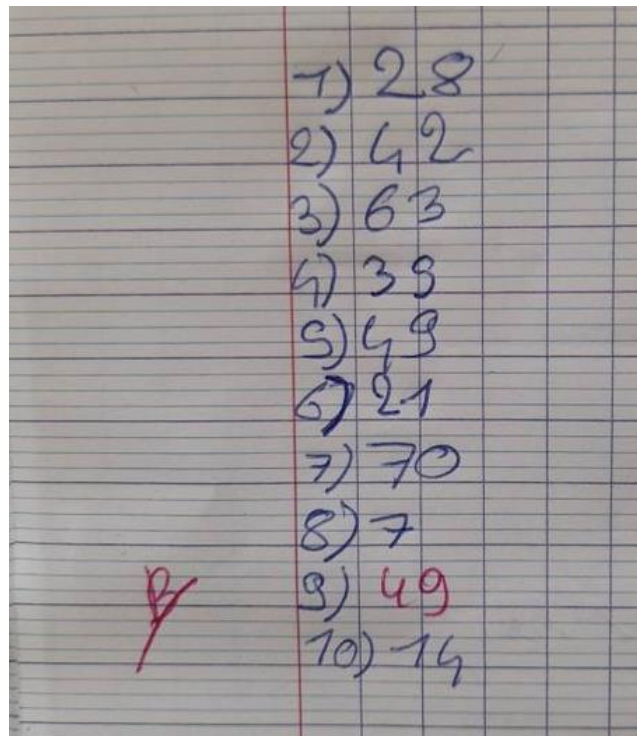 1) 28
2) 42
3) 63
4) 39
5) 49
6) 21
7) 70
8) 7
9) 49
B
10) 14